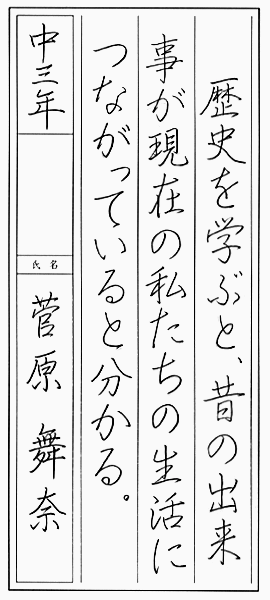 歴史を学ぶと、昔の出来
事が現在の私たちの生活に
つながっていると分かる。
中三年
氏名
菅原 舞奈